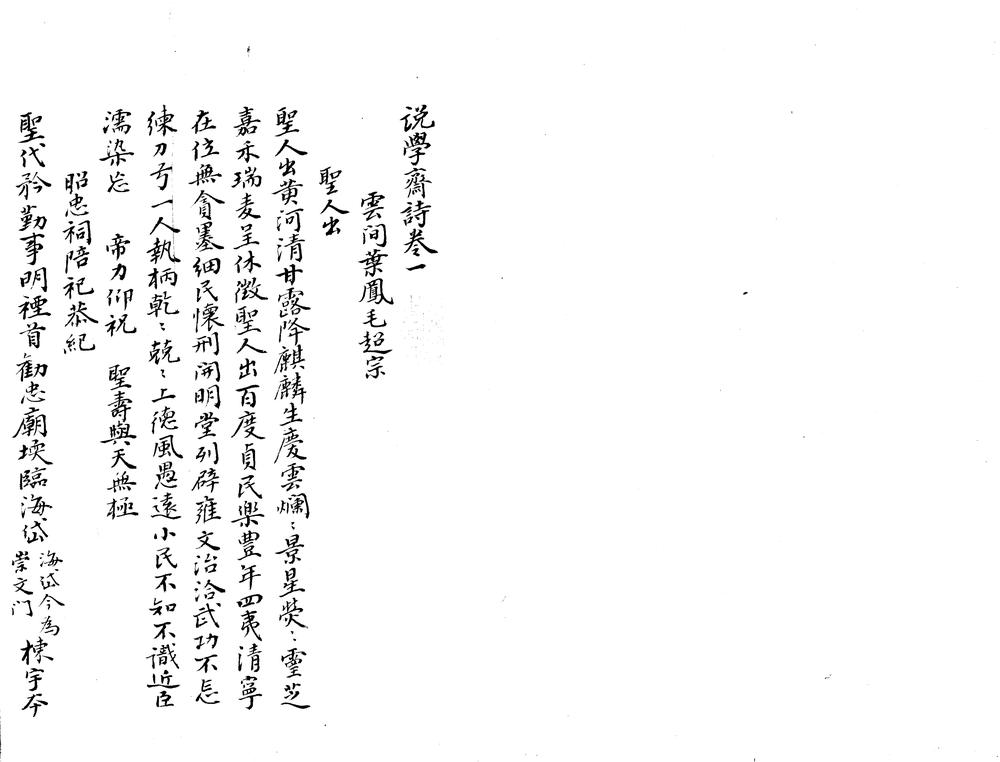 说學齋詩卷一
雲间葉鳳毛超宗
聖人出
聖人出黄河清甘露降麒麟生慶雲爛〻景星熒〻靈芝
嘉禾瑞麦呈休徵聖人出百度貞民樂豊年四夷清寧
在位無貪墨细民懷刑開明堂列辟雍文治洽武功不忘
練刀弓一人執柄乾〻兢〻上德風愚遠小民不知不識近臣
濡染忘 帝力仰祝 聖壽與天無極
昭忠祠陪祀恭紀
聖代矜勤事明禋首勸忠廟堧臨海岱海岱今為崇文门棟宇夲